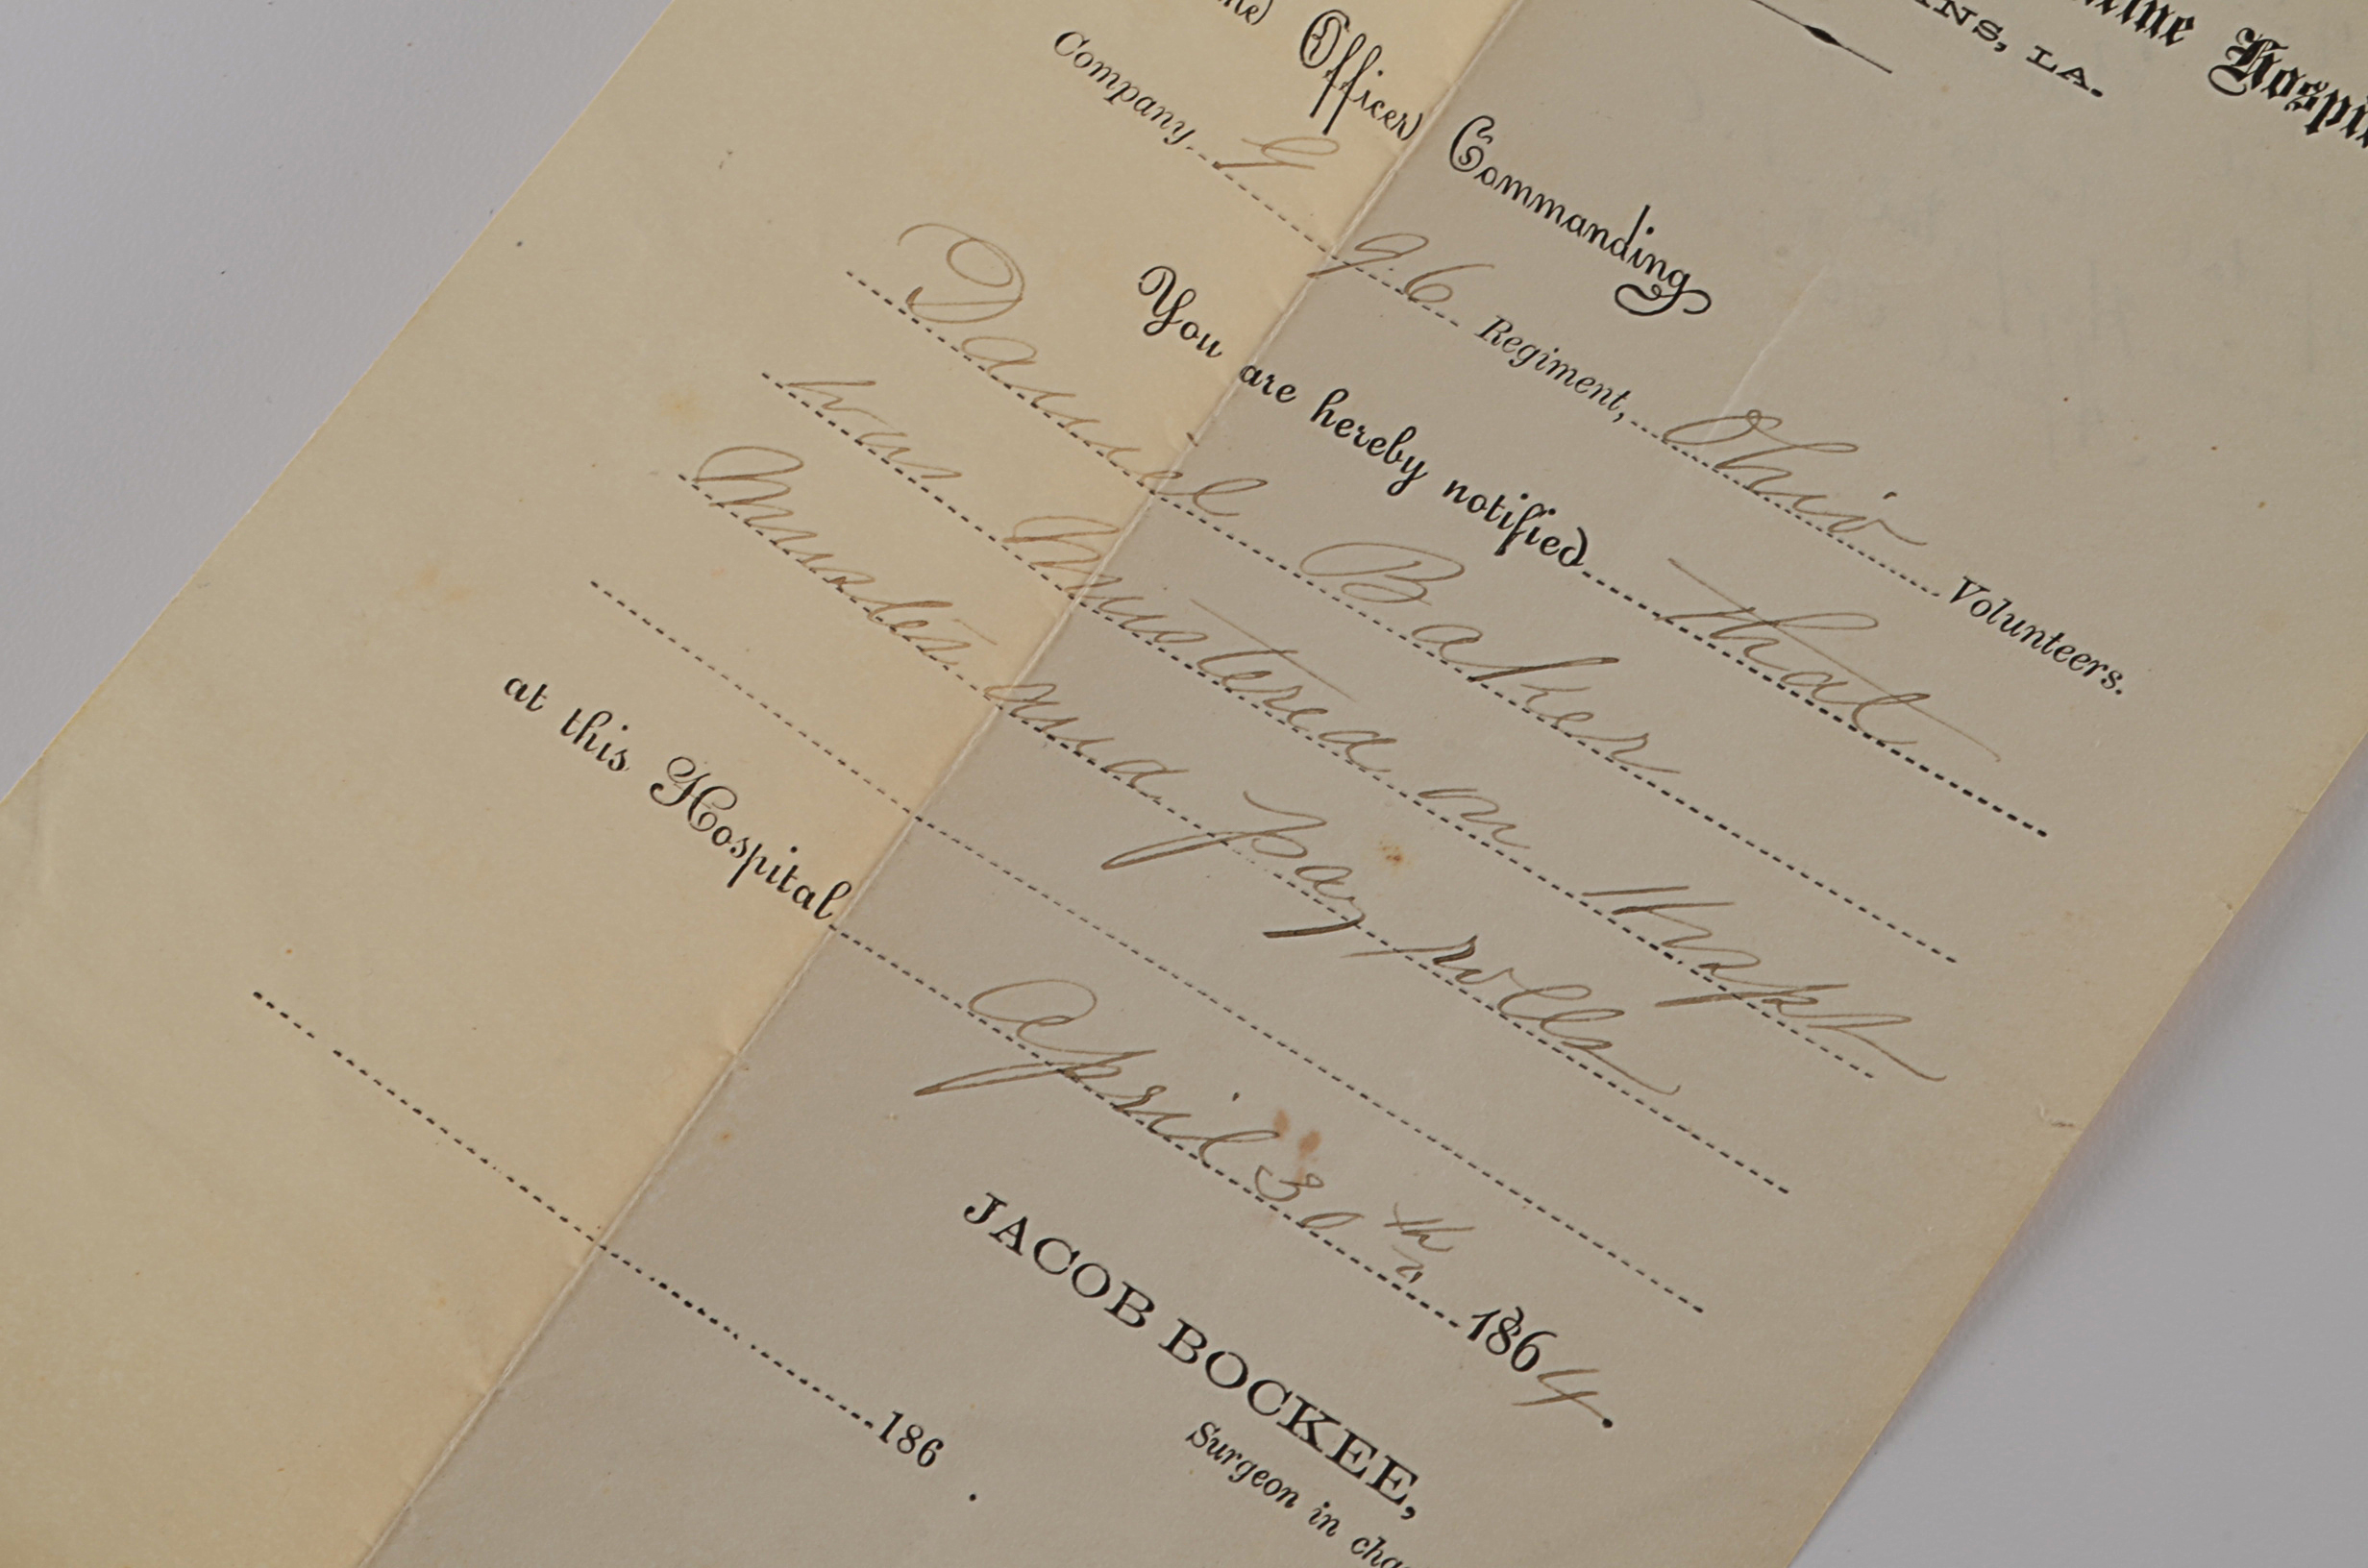 LA.
Officer Commanding
Company G 96 Regiment, Ohio Volunteers.
You are hereby notified that
Daniel Baker
was mustered on Hospt
Muster and pay rolls
at this Hospital April 30th 1864.
JACOB BOCKEE,
Surgeon in
186 .